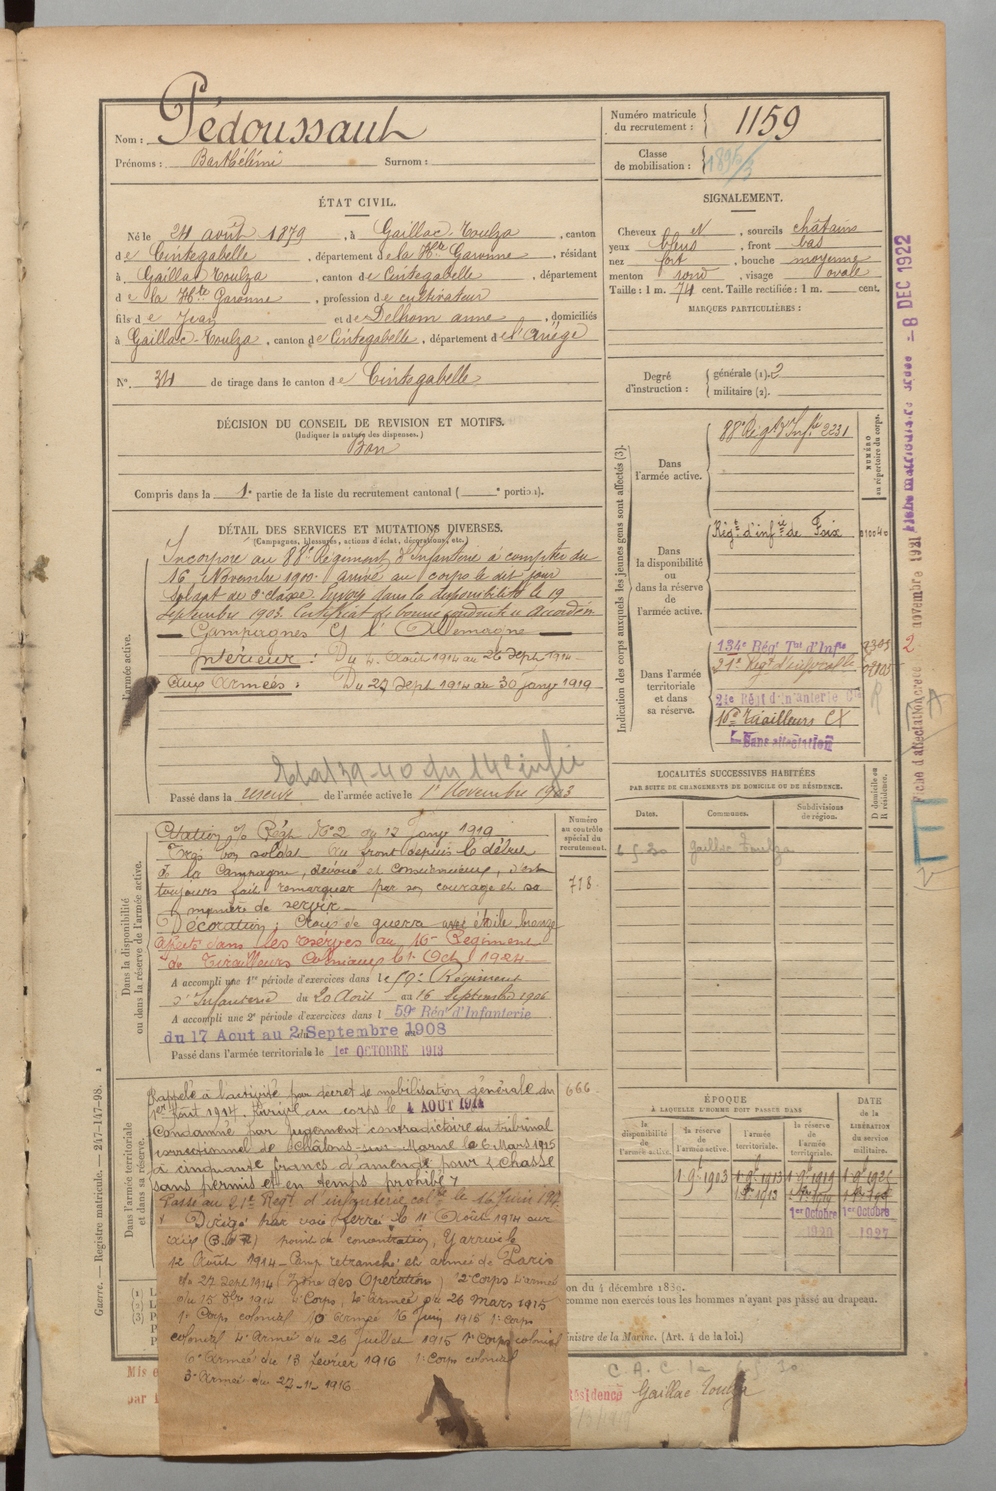 Nom : Pédoussaut
Prénoms : Barthélémi Surnom :
Numéro matricule du recrutement : 1159
Classe de mobilisation :
ÉTAT CIVIL.
Né le 24 août 1879, à Gaillac-Toulza, canton
de Cintegabelle, département de la Hte Garonne, résidant
à Gaillac Toulza, canton de Cintegabelle, département
de la Hte Garonne, profession de cultivateur
fils de Jean et de Delhom anne, domiciliés
à Gaillac-Toulza, canton de Cintegabelle, département de l'Ariège
N° 34 de tirage dans le canton de Cintegabelle
SIGNALEMENT.
Cheveux N, sourcils châtains
yeux bleus, front bas
nez fort, bouche moyenne
menton rond, visage ovale
Taille : 1 m. 74 cent. Taille rectifiée : 1 m. cent.
MARQUES PARTICULIÈRES :
Degré d'instruction : générale (1). 2
militaire (2).
DÉCISION DU CONSEIL DE REVISION ET MOTIFS.
(Indiquer la nature des dispenses.)
Bon
Compris dans la 1e partie de la liste du recrutement cantonal ( portion).
DÉTAIL DES SERVICES ET MUTATIONS DIVERSES.
(Campagnes, blessures, actions d'éclat, décorations, etc.)
Incorporé au 88e Régiment d'Infanterie à compter du
16 Novembre 1900. arrivé au corps le dit jour
Soldat de 2e classe. Envoyé dans la disponibilité le 19
septembre 1903. Certificat de bonne conduite accordé
Campagnes Ct l'Allemagne
Intérieur : Du 4 Août 1914 au 26 Sept 1914
Aux Armées : Du 27 Sept 1914 au 30 janv 1919
Passé dans la réserve de l'armée active le 1er Novembre 1903
Indication des corps auxquels les jeunes gens sont affectés (3).
NUMÉRO au répertoire du corps.
Dans l'armée active. 88e Régt d'Infie 2231
Dans la disponibilité ou dans la réserve de l'armée active. Régt d'infie de Foix 010040
Dans l'armée territoriale et dans sa réserve. 134e Régt Tal d'Infie
21e Régt d'infie colle
21e Régt d'infanterie Cle
16e Tirailleurs CX
Sans affectation
LOCALITÉS SUCCESSIVES HABITÉES
PAR SUITE DE CHANGEMENTS DE DOMICILE OU DE RÉSIDENCE.
Dates. Communes. Subdivisions de région. D domicile ou R résidence.
6 5 30 Gaillac Toulza
Dans la disponibilité ou dans la réserve de l'armée active.
Numéro au contrôle spécial du recrutement.
718
Citation à Régt N° 2 du 12 janv 1919
Très bon soldat au front depuis le début
de la campagne, dévoué et consciencieux, s'est
toujours fait remarquer par son courage et sa
manière de servir.
Décoration ; Croix de guerre avec étoile bronze
Affecté dans les réserves au 16e Régiment
de Tirailleurs Coloniaux le 1er Oct 1924
A accompli une 1re période d'exercices dans le 59e Régiment
d'Infanterie du 20 Août au 16 Septembre 1906
A accompli une 2e période d'exercices dans l 59e Rég' d'Infanterie
du 17 Aout au 2 Septembre 1908
Passé dans l'armée territoriale le 1er OCTOBRE 1913
Dans l'armée territoriale et dans sa réserve.
666
Rappelé à l'activité par décret de mobilisation générale du
1er Août 1914. Arrivé au corps le 4 AOUT 1914
Condamné par jugement contradictoire du tribunal
correctionnel de Châlons-sur-Marne le 6 Mars 1915
à cinquante francs d'amende pour "Chasse
sans permis et en temps prohibé"
Passé au 21e Régt d'infanterie colle le 16 Juin 191
Dirigé par voie ferrée le 11 Août 1914 sur
point de concentration, y arrive le
12 Août 1914. Camp retranché et armée de Paris
du 27 Sept 1914 (Zone des Opération) 12e Corps 4e armée
du 15 8bre 1914 Corps, 4e armée du 26 Mars 1915
1er Corps colonial 10 armée 16 Juin 1915 1er corps
colonial 4e Armée du 26 Juillet 1915 1er Corps colonial
6e Armée du 13 février 1916 1er Corps colonial
3e Armée du 27-11-1916
ÉPOQUE
À LAQUELLE L'HOMME DOIT PASSER DANS
la disponibilité de l'armée active. la réserve de l'armée active. l'armée territoriale. la réserve de l'armée territoriale. DATE de la LIBÉRATION du service militaire.
1 9bre 1903 1 9bre 1913 1 9bre 1919
1er Octobre 1er Octobre
1927
on du 4 décembre 1889.
comme non exercés tous les hommes n'ayant pas passé au drapeau.
inistre de la Marine. (Art. 4 de la loi.)
C.A.C. le 6.5.30
Résidence Gaillac Toulza
Guerre. — Registre matricule. — 247-147-98.
- 8 DEC 1922